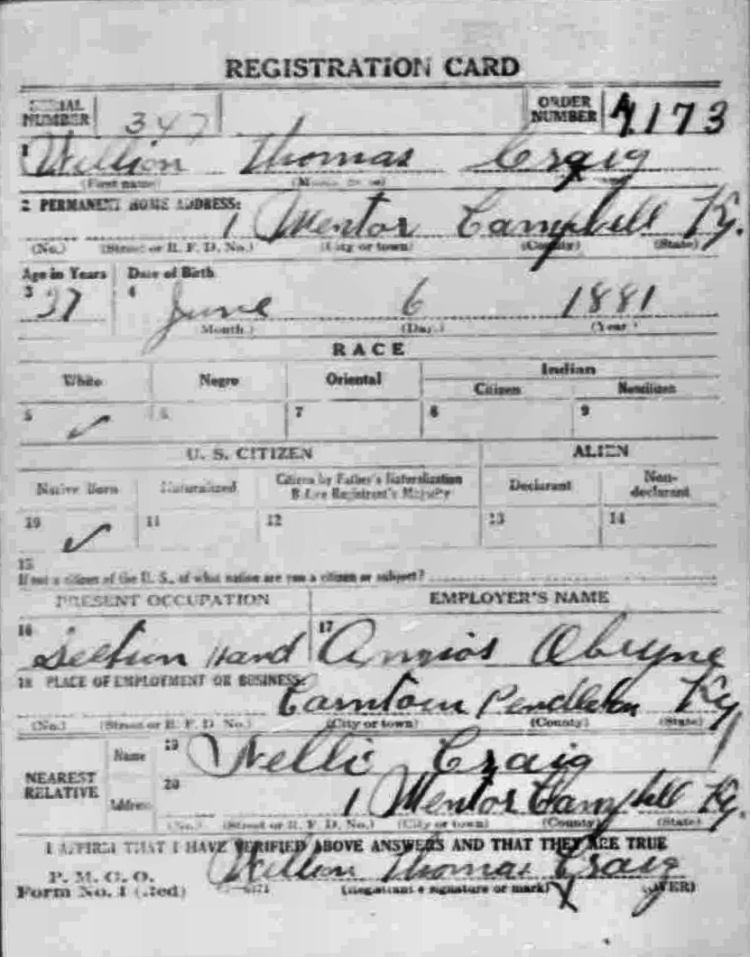 REGISTRATION CARD
SERIAL NUMBER 347 ORDER NUMBER A1173
1 Willion Thomas Craig
(First name) (Middle name)
2 PERMANENT HOME ADDRESS:
1 Mentor Campbell Ky.
(No.) (Street or R. F. D. No.) (City or town) (County) (State)
Age in Years Date of Birth
3 37 4 June 6 1881
(Month.) (Day.) (Year.)
RACE
White Negro Oriental Indian
Citizen Noncitizen
5 ✓ 6 7 8 9
U. S. CITIZEN ALIEN
Native Born Naturalized Citizen by Father's Naturalization Before Registrant's Majority Declarant Non-declarant
10 ✓ 11 12 13 14
15
If not a citizen of the U. S., of what nation are you a citizen or subject?
PRESENT OCCUPATION EMPLOYER'S NAME
16 Section Hand 17 Obryne
18 PLACE OF EMPLOYMENT OR BUSINESS:
Carntown Pendleton Ky
(No.) (Street or R. F. D. No.) (City or town) (County) (State)
NEAREST RELATIVE Name 19 Nellie Craig
Address 20 1 Mentor Campbell Ky.
(No.) (Street or R. F. D. No.) (City or town) (County) (State)
I AFFIRM THAT I HAVE VERIFIED ABOVE ANSWERS AND THAT THEY ARE TRUE
P. M. G. O.
Form No. 1 (Red) Willion Thomas Craig
(Registrant's signature or mark) X (OVER)